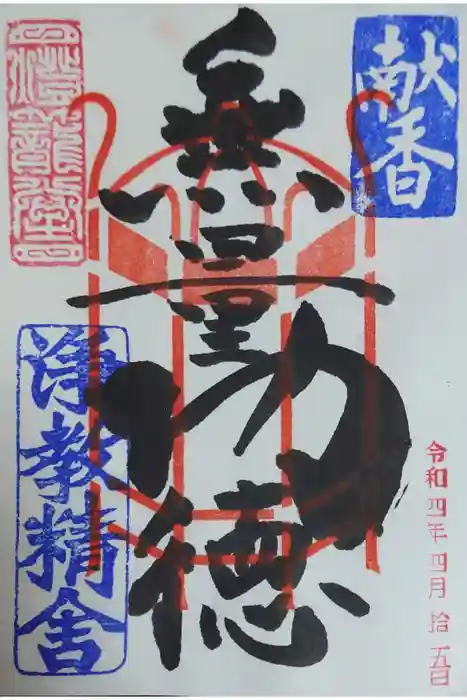 献香
令和四年四月拾五日
無量功徳
浄教精舎